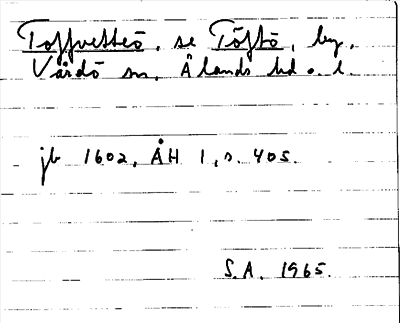 Toffvettsö, se Töftö, by,
Vårdö sn, Ålands hd o. l.
jb 1602, ÅH 1, s. 405.
S.A. 1965.